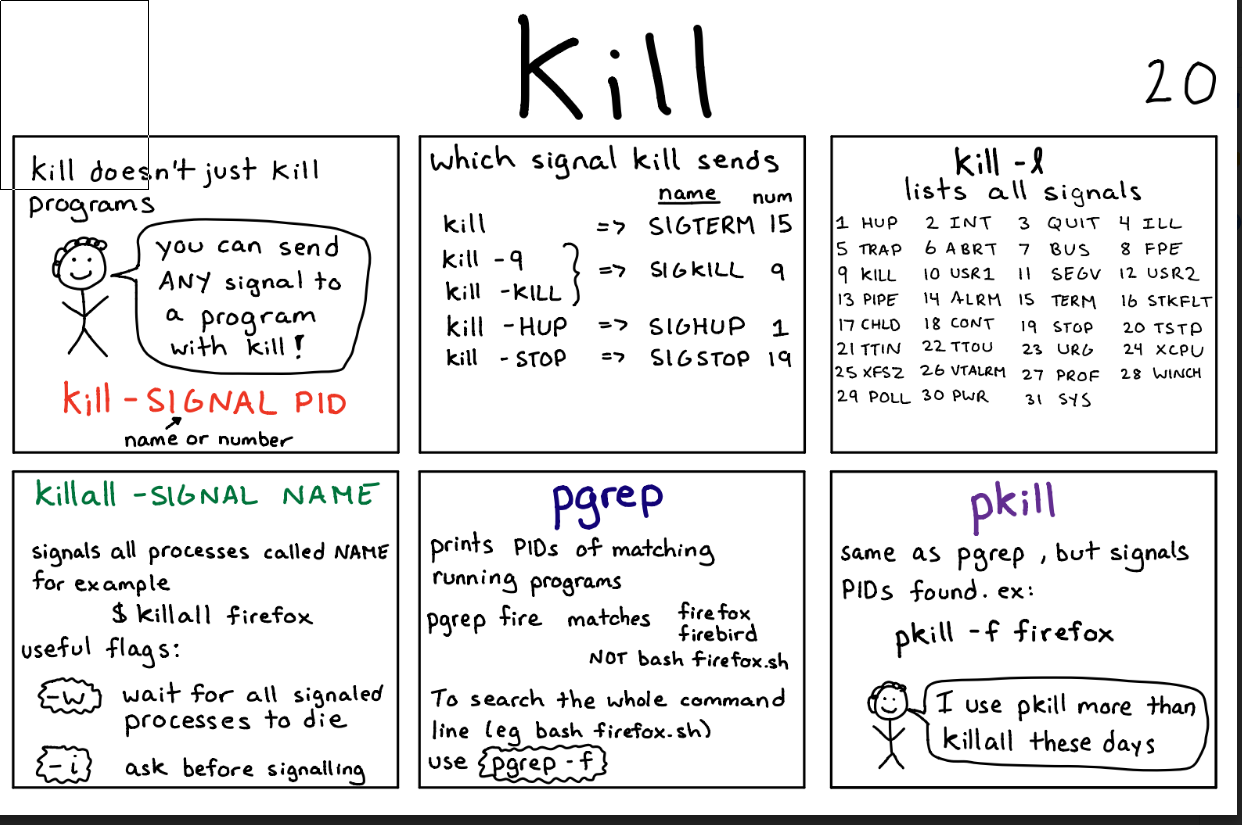 kill
20
kill doesn't just kill
programs
you can send
ANY signal to
a program
with kill!
kill -SIGNAL PID
name or number
which signal kill sends
name num
kill => SIGTERM 15
kill -9
=> SIGKILL 9
kill -KILL
kill -HUP => SIGHUP 1
kill -STOP => SIGSTOP 19
kill -l
lists all signals
1 HUP 2 INT 3 QUIT 4 ILL
5 TRAP 6 ABRT 7 BUS 8 FPE
9 KILL 10 USR1 11 SEGV 12 USR2
13 PIPE 14 ALRM 15 TERM 16 STKFLT
17 CHLD 18 CONT 19 STOP 20 TSTP
21 TTIN 22 TTOU 23 URG 24 XCPU
25 XFSZ 26 VTALRM 27 PROF 28 WINCH
29 POLL 30 PWR 31 SYS
killall -SIGNAL NAME
signals all processes called NAME
for example
$ killall firefox
useful flags:
-w wait for all signaled
processes to die
-i ask before signalling
pgrep
prints PIDs of matching
running programs
pgrep fire matches firefox
firebird
NOT bash firefox.sh
To search the whole command
line (eg bash firefox.sh)
use pgrep -f
pkill
same as pgrep, but signals
PIDs found. ex:
pkill -f firefox
I use pkill more than
killall these days